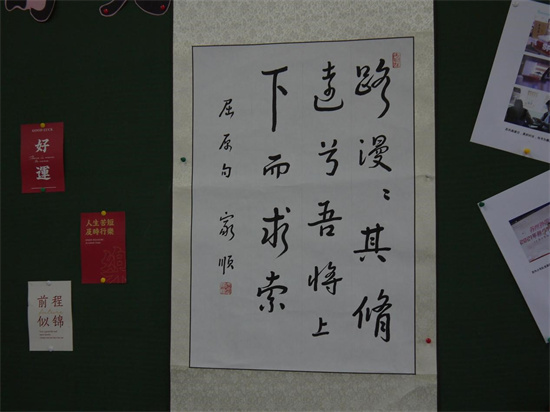 路漫〻其脩
遠兮吾将上
下而求索
屈原句 家順
好
運
人生苦短
及時行樂
前程
似锦